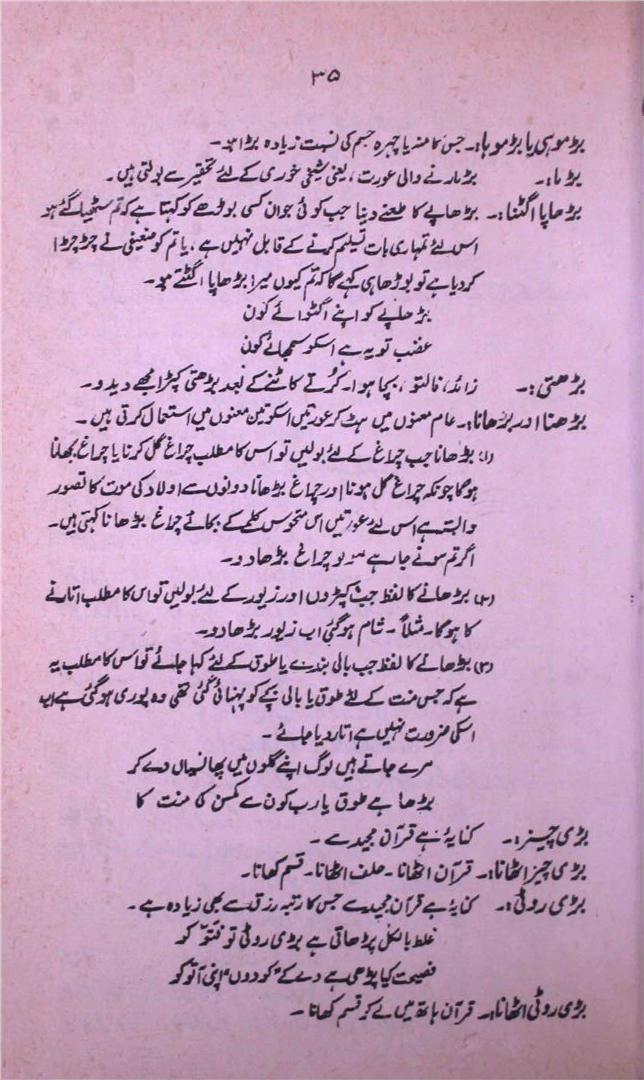 ۳۵
بڑموہی یا بڑموہا:۔ جس کا منہ یا چہرہ جسم کی نسبت زیادہ بڑا ہو۔
بڑما:۔ بڑ مارنے والی عورت، یعنی شیخی خوری کے لئے تحقیر سے بولتی ہیں۔
بڑھاپا اگٹنا:۔ بڑھاپے کا طعنے دینا جب کوئی جوان کسی بوڑھے کو کہتا ہے کہ تم سٹھیا گئے ہو
اس لئے تمہاری بات تسلیم کرنے کے قابل نہیں ہے، یا تم کو ضعیفی نے چڑچڑا
کر دیا ہے تو بوڑھا ہی کہے گا کہ تم کیوں میرا بڑھاپا اگٹتے ہو۔
بڑھاپے کو اپنے اگٹوائے کون
غضب تو یہ ہے اسکو سمجھائے کون
بڑھتی:۔ زائد، فالتو، بچا ہوا۔ کُرتے کاٹنے کے بعد بڑھتی کپڑا مجھے دیدو۔
بڑھنا اور بڑھانا:۔ عام معنوں میں ہٹ کر عورتیں اسکو تین معنوں میں استعمال کرتی ہیں۔
(۱) بڑھانا جب چراغ کے لئے بولیں تو اس کا مطلب چراغ گل کرنا یا چراغ بجھانا
ہوگا چونکہ چراغ گل ہونا اور چراغ بڑھانا دونوں سے اولاد کی موت کا تصور
وابستہ ہے اس لئے عورتیں اس منحوس کلمے کے بجائے چراغ بڑھانا کہتی ہیں۔
اگر تم سونے جا رہے ہو تو چراغ بڑھا دو۔
(۲) بڑھانے کا لفظ جب کپڑوں اور زیور کے لئے بولیں تو اس کا مطلب اتارنے
کا ہوگا۔ مثلاً۔ شام ہوگئی اب زیور بڑھا دو۔
(۳) بڑھانے کا لفظ جب بالی بندے یا طوق کے لئے کہا جائے تو اس کا مطلب یہ
ہے کہ جس منت کے لئے طوق یا بالی بچے کو پہنائی گئی تھی وہ پوری ہوگئی ہے اب
اسکی ضرورت نہیں ہے اتار دیا جائے۔
مرے جاتے ہیں لوگ اپنے گلوں میں پھانسیاں دے کر
بڑھا ہے طوق یارب کون سے کمسن کی منت کا
بڑی چیز:۔ کنایہ ہے قرآن مجید سے۔
بڑی چیز اٹھانا:۔ قرآن اٹھانا۔ حلف اٹھانا۔ قسم کھانا۔
بڑی روٹی:۔ کنایہ ہے قرآن مجید سے جس کا رتبہ رزق سے بھی زیادہ ہے۔
غلط بالکل پڑھاتی ہے بڑی روٹی تو نتّو کو
فضیحت کیا پڑھی ہے دے کے "کودوں" اپنی آتو کو
بڑی روٹی اٹھانا:۔ قرآن ہاتھ میں لے کر قسم کھانا۔